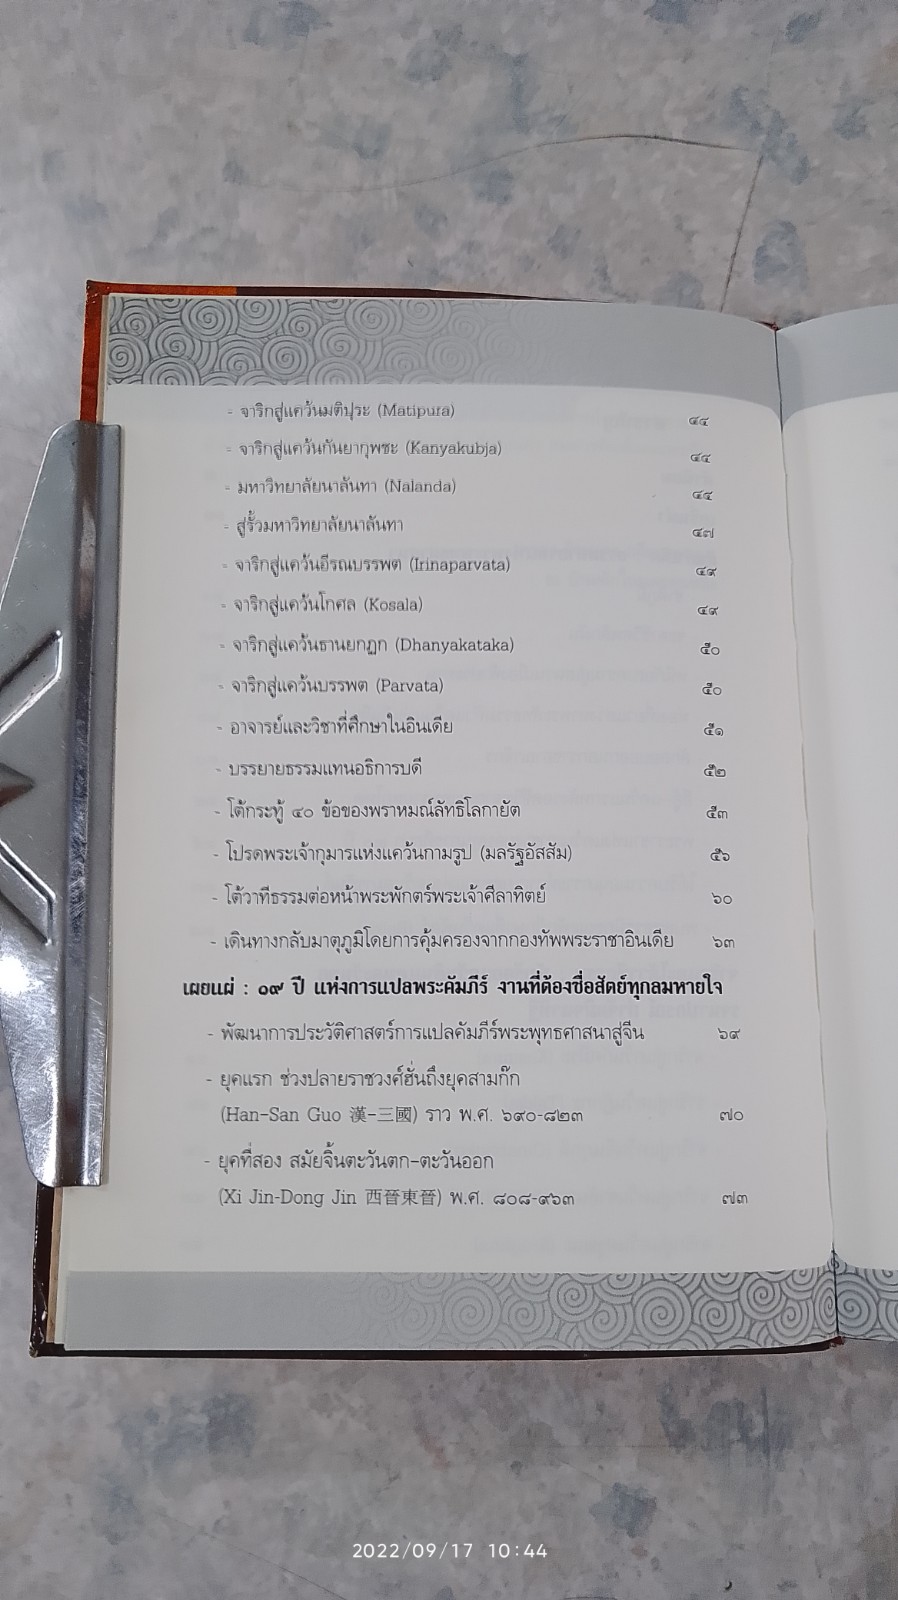 - จาริกสู่แคว้นมติปุระ (Matipura) ๔๔
- จาริกสู่แคว้นกันยากุพชะ (Kanyakubja) ๔๕
- มหาวิทยาลัยนาลันทา (Nalanda) ๔๕
- สู่รั้วมหาวิทยาลัยนาลันทา ๔๗
- จาริกสู่แคว้นอีรณบรรพต (Irinaparvata) ๔๙
- จาริกสู่แคว้นโกศล (Kosala) ๔๙
- จาริกสู่แคว้นธานยกฏก (Dhanyakataka) ๕๐
- จาริกสู่แคว้นบรรพต (Parvata) ๕๐
- อาจารย์และวิชาที่ศึกษาในอินเดีย ๕๑
- บรรยายธรรมแทนอธิการบดี ๕๒
- โต้กระทู้ ๔๐ ข้อของพราหมณ์ลัทธิโลกายัต ๕๓
- โปรดพระเจ้ากุมารแห่งแคว้นกามรูป (มลรัฐอัสสัม) ๕๖
- โต้วาทีธรรมต่อหน้าพระพักตร์พระเจ้าศีลาทิตย์ ๖๐
- เดินทางกลับมาตุภูมิโดยการคุ้มครองจากกองทัพพระราชาอินเดีย ๖๓
เผยแผ่ : ๑๙ ปี แห่งการแปลพระคัมภีร์ งานที่ต้องซื่อสัตย์ทุกลมหายใจ
- พัฒนาการประวัติศาสตร์การแปลคัมภีร์พระพุทธศาสนาสู่จีน ๖๙
- ยุคแรก ช่วงปลายราชวงศ์ฮั่นถึงยุคสามก๊ก
(Han-San Guo 漢-三國) ราว พ.ศ. ๖๙๐-๘๒๓ ๗๐
- ยุคที่สอง สมัยจิ้นตะวันตก-ตะวันออก
(Xi Jin-Dong Jin 西晉東晉) พ.ศ. ๘๐๘-๙๖๓ ๗๓
2022/09/17 10:44